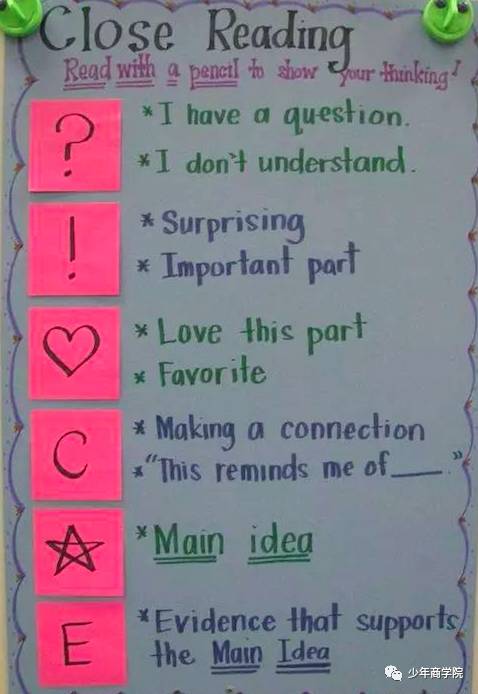 Close Reading
Read with a pencil to show your thinking!
?
* I have a question.
* I don't understand.
!
* Surprising
* Important part
♡
* Love this part
* Favorite
C
* Making a connection
* "This reminds me of ____."
☆
* Main idea
E
* Evidence that supports
the Main Idea
少年商学院